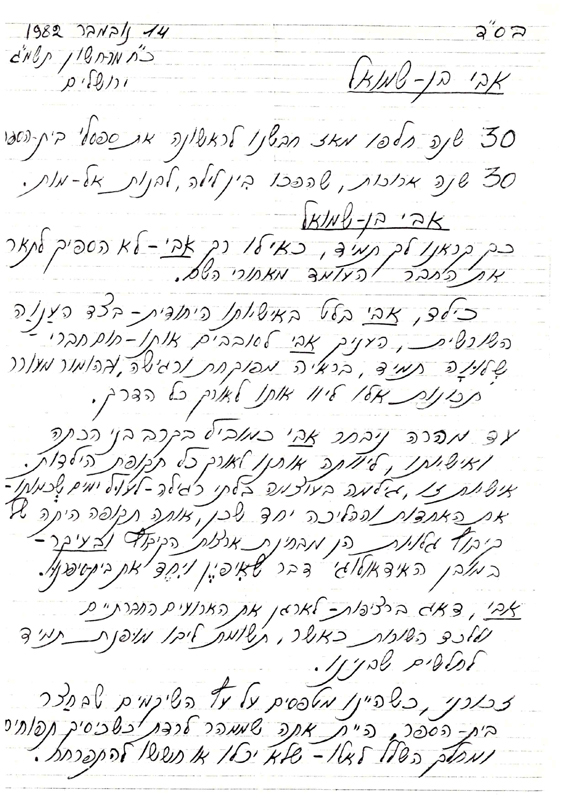 בס"ד
14 נובמבר 1982
כ"ח מרחשון תשמ"ג
ירושלים
אבי בן-שמואל
30 שנה חלפו מאז חבשנו לראשונה את ספסלי בית-הספר
30 שנה ארוכות, שהפכו בין לילה, לבנות אל-מות.
אבי בן-שמואל
כך קראנו לך תמיד, כאילו רק אבי - לא הספיק לתאר
את החבר העומד מאחורי השם.
כילד, אבי בלט באישיותו היחודית - בצד הענוה
השורשית, העניק אבי לסובבים אותו - חום חברי -
שלוה תמיד, בראיה מפוקחת ורגישה, ובהומור מעורר
תכונות אלו ליוו אותו לאורך כל הדרך.
עד מהרה ניבחר אבי כמוביל בקרב בני הכתה
ואישיותו, ליוותה אותנו לאורך כל תקופת הילדות.
אישיות זו, גילמה בעוצמה בלתי רגילה - לעול ימים שכמותו -
את האחדות וההליכה יחד שכן, אותה תקופה היתה של
קיבוץ גלויות הן מבחינת ארצות הקיבוץ ובעיקר -
במובן האידאולוגי דבר שאיפיין ויחד את בית-סיפרנו.
אבי, דאג ברציפות - לארגן את הארועים החברתיים
ולכד השורות כאשר, תשומת ליבו מופנת תמיד
לחלשים שבנינו.
זכורני, כשהיינו מטפסים על עץ השיקמים שבחצר
בית-הספר, היית אתה שממהר לרדת כשכיסיך תפוחים
ומחלק השלל לאלו - שלא יכלו או חששו להתפרחח.